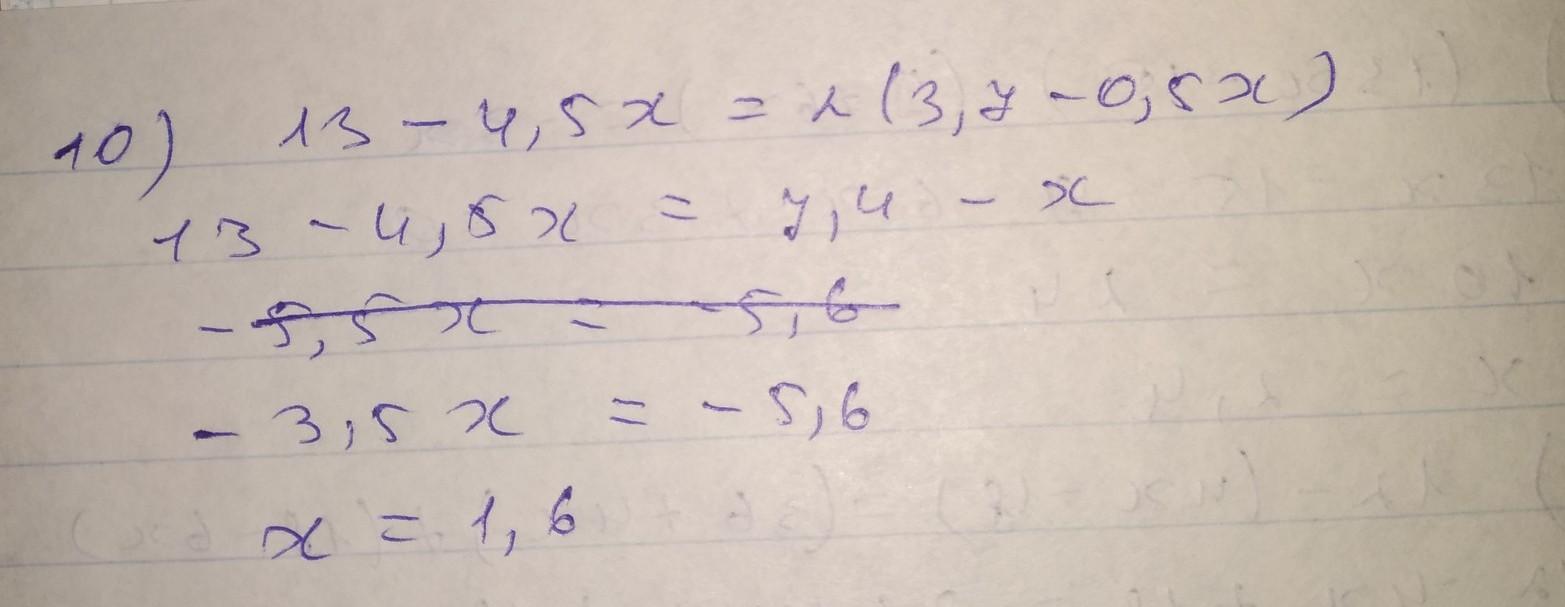 10) 13 - 4,5x = 2(3,7 - 0,5x)
13 - 4,5x = 7,4 - x
- 5,5x = -5,6
- 3,5x = -5,6
x = 1,6